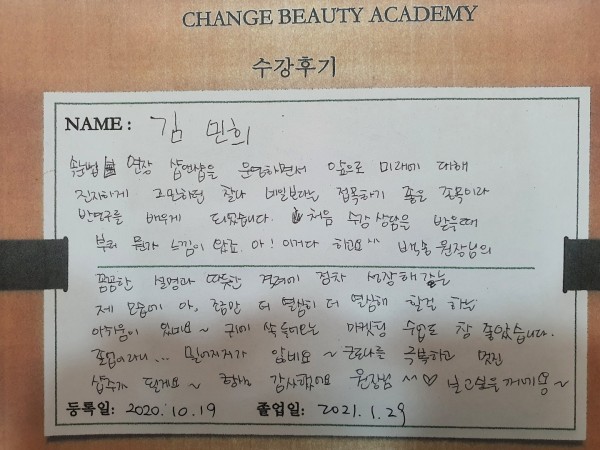 CHANGE BEAUTY ACADEMY
수강후기
NAME : 김 민희
속눈썹 연장 샵앤샵을 운영하면서 앞으로 미래에 대해
진지하게 고민하던 찰나 네일보다는 접목하기 좋을 종목이라
반영구를 배우게 되었습니다. 처음 수강 상담을 받을때
부터 뭔가 느낌이 왔죠. 아! 이거다 하고요^^ 백송 원장님의
꼼꼼한 설명과 따뜻한 격려에 점차 성장해 가는
제 모습에 아, 좀만 더 열심히 더 열심히 할걸 하는
아쉬움이 있네요~ 귀에 쏙 들어오는 마케팅 수업도 참 좋았습니다.
졸업이라니... 믿어지지가 않네요~ 코로나를 극복하고 멋진
샵주가 될게요~ 항상 감사했어요 원장님 ^^♡ 보고싶을꺼예용~
등록일: 2020. 10. 19 졸업일: 2021. 1. 29